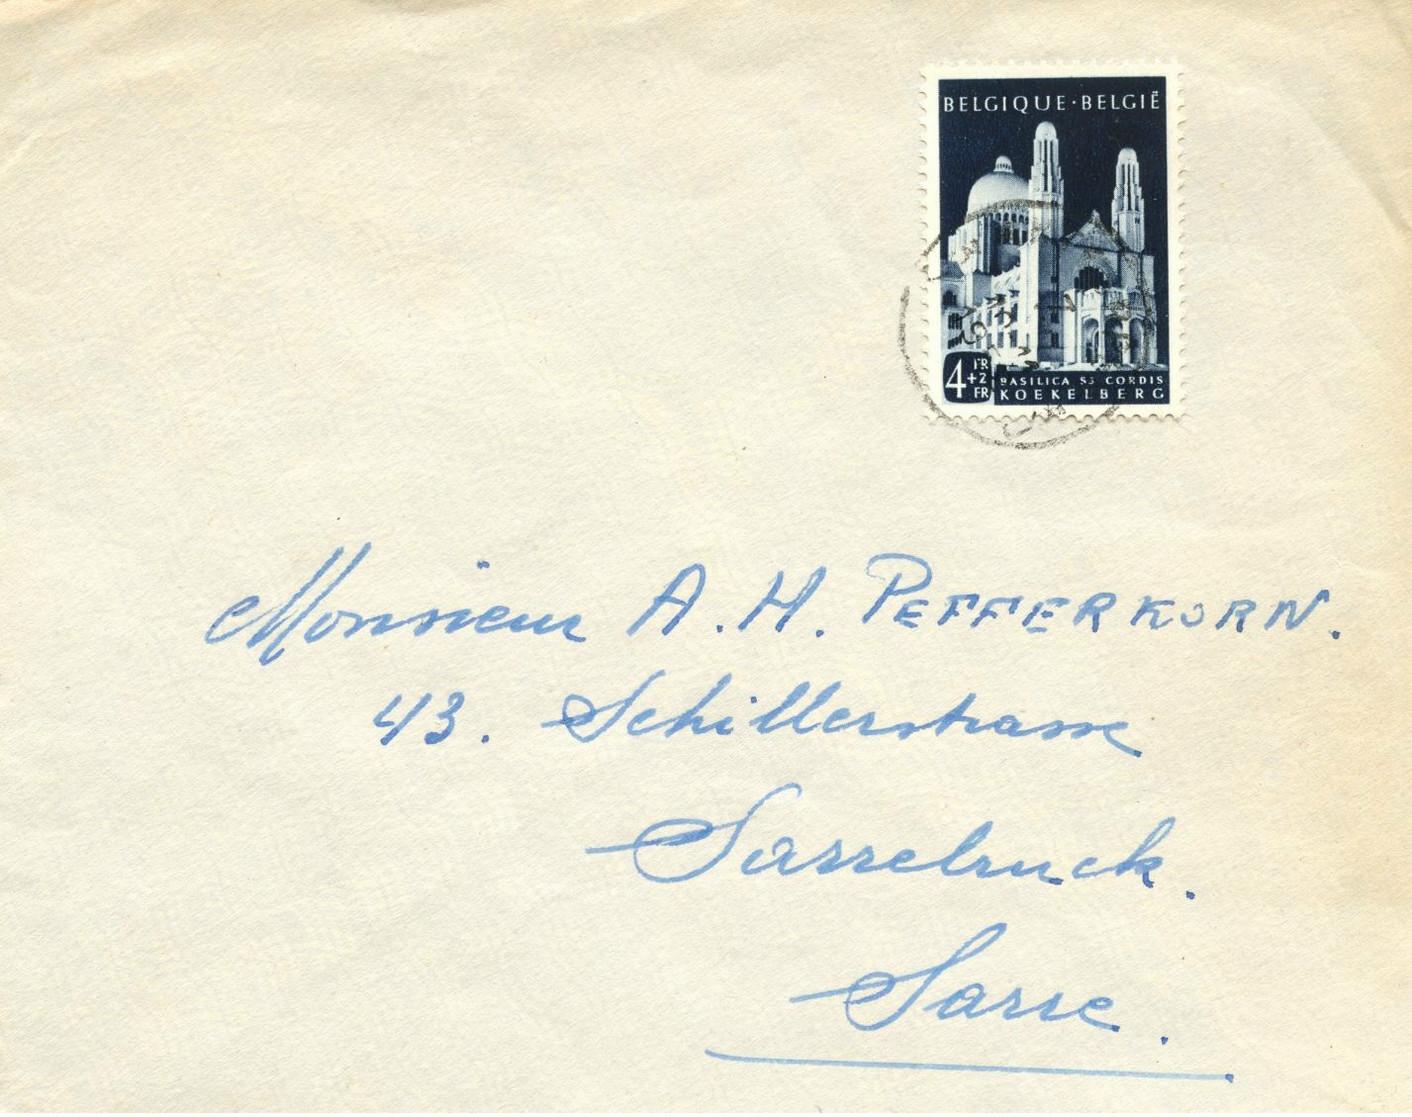 BELGIQUE·BELGIË
4 FR +2 FR
BASILICA SS CORDIS
KOEKELBERG
Monsieur A. H. PEFFERKORN.
43. Schillerstrasse
Sarrebruck.
Sarre.